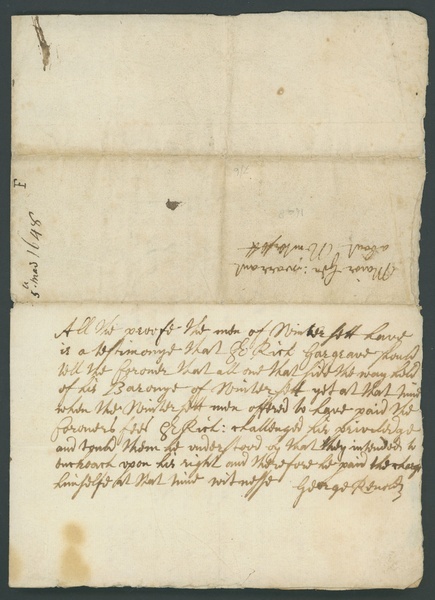 5º Mar 1648
F
Maior Gen: warrant
about Wintersett
All the proofe the men of Wintersett have
is a testimonye that Sr Rich Hargrave should
tell the Coroner that all one that side the way held
of his Baronye of Wintersett yet at that time
when the Wintersett men offered to have paid the
Coroners fees Sr Rich: challenged his priviledge
and tould them he understood by that they intended to
encroach upon his right and therefore he paid the charge
himselfe at that time witnesse
George